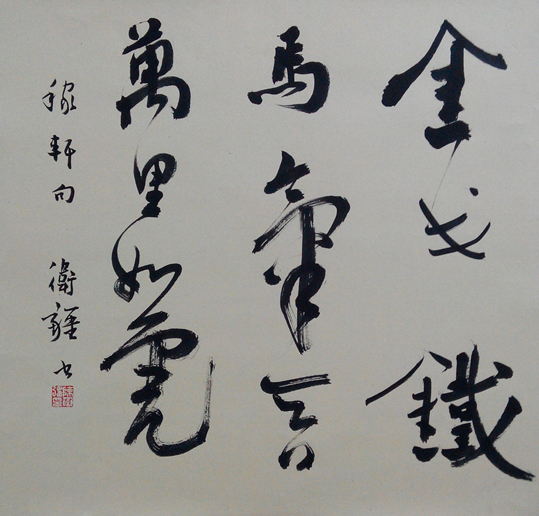 金戈鐵
馬氣吞
萬里如虎
稼軒句 衛疆书